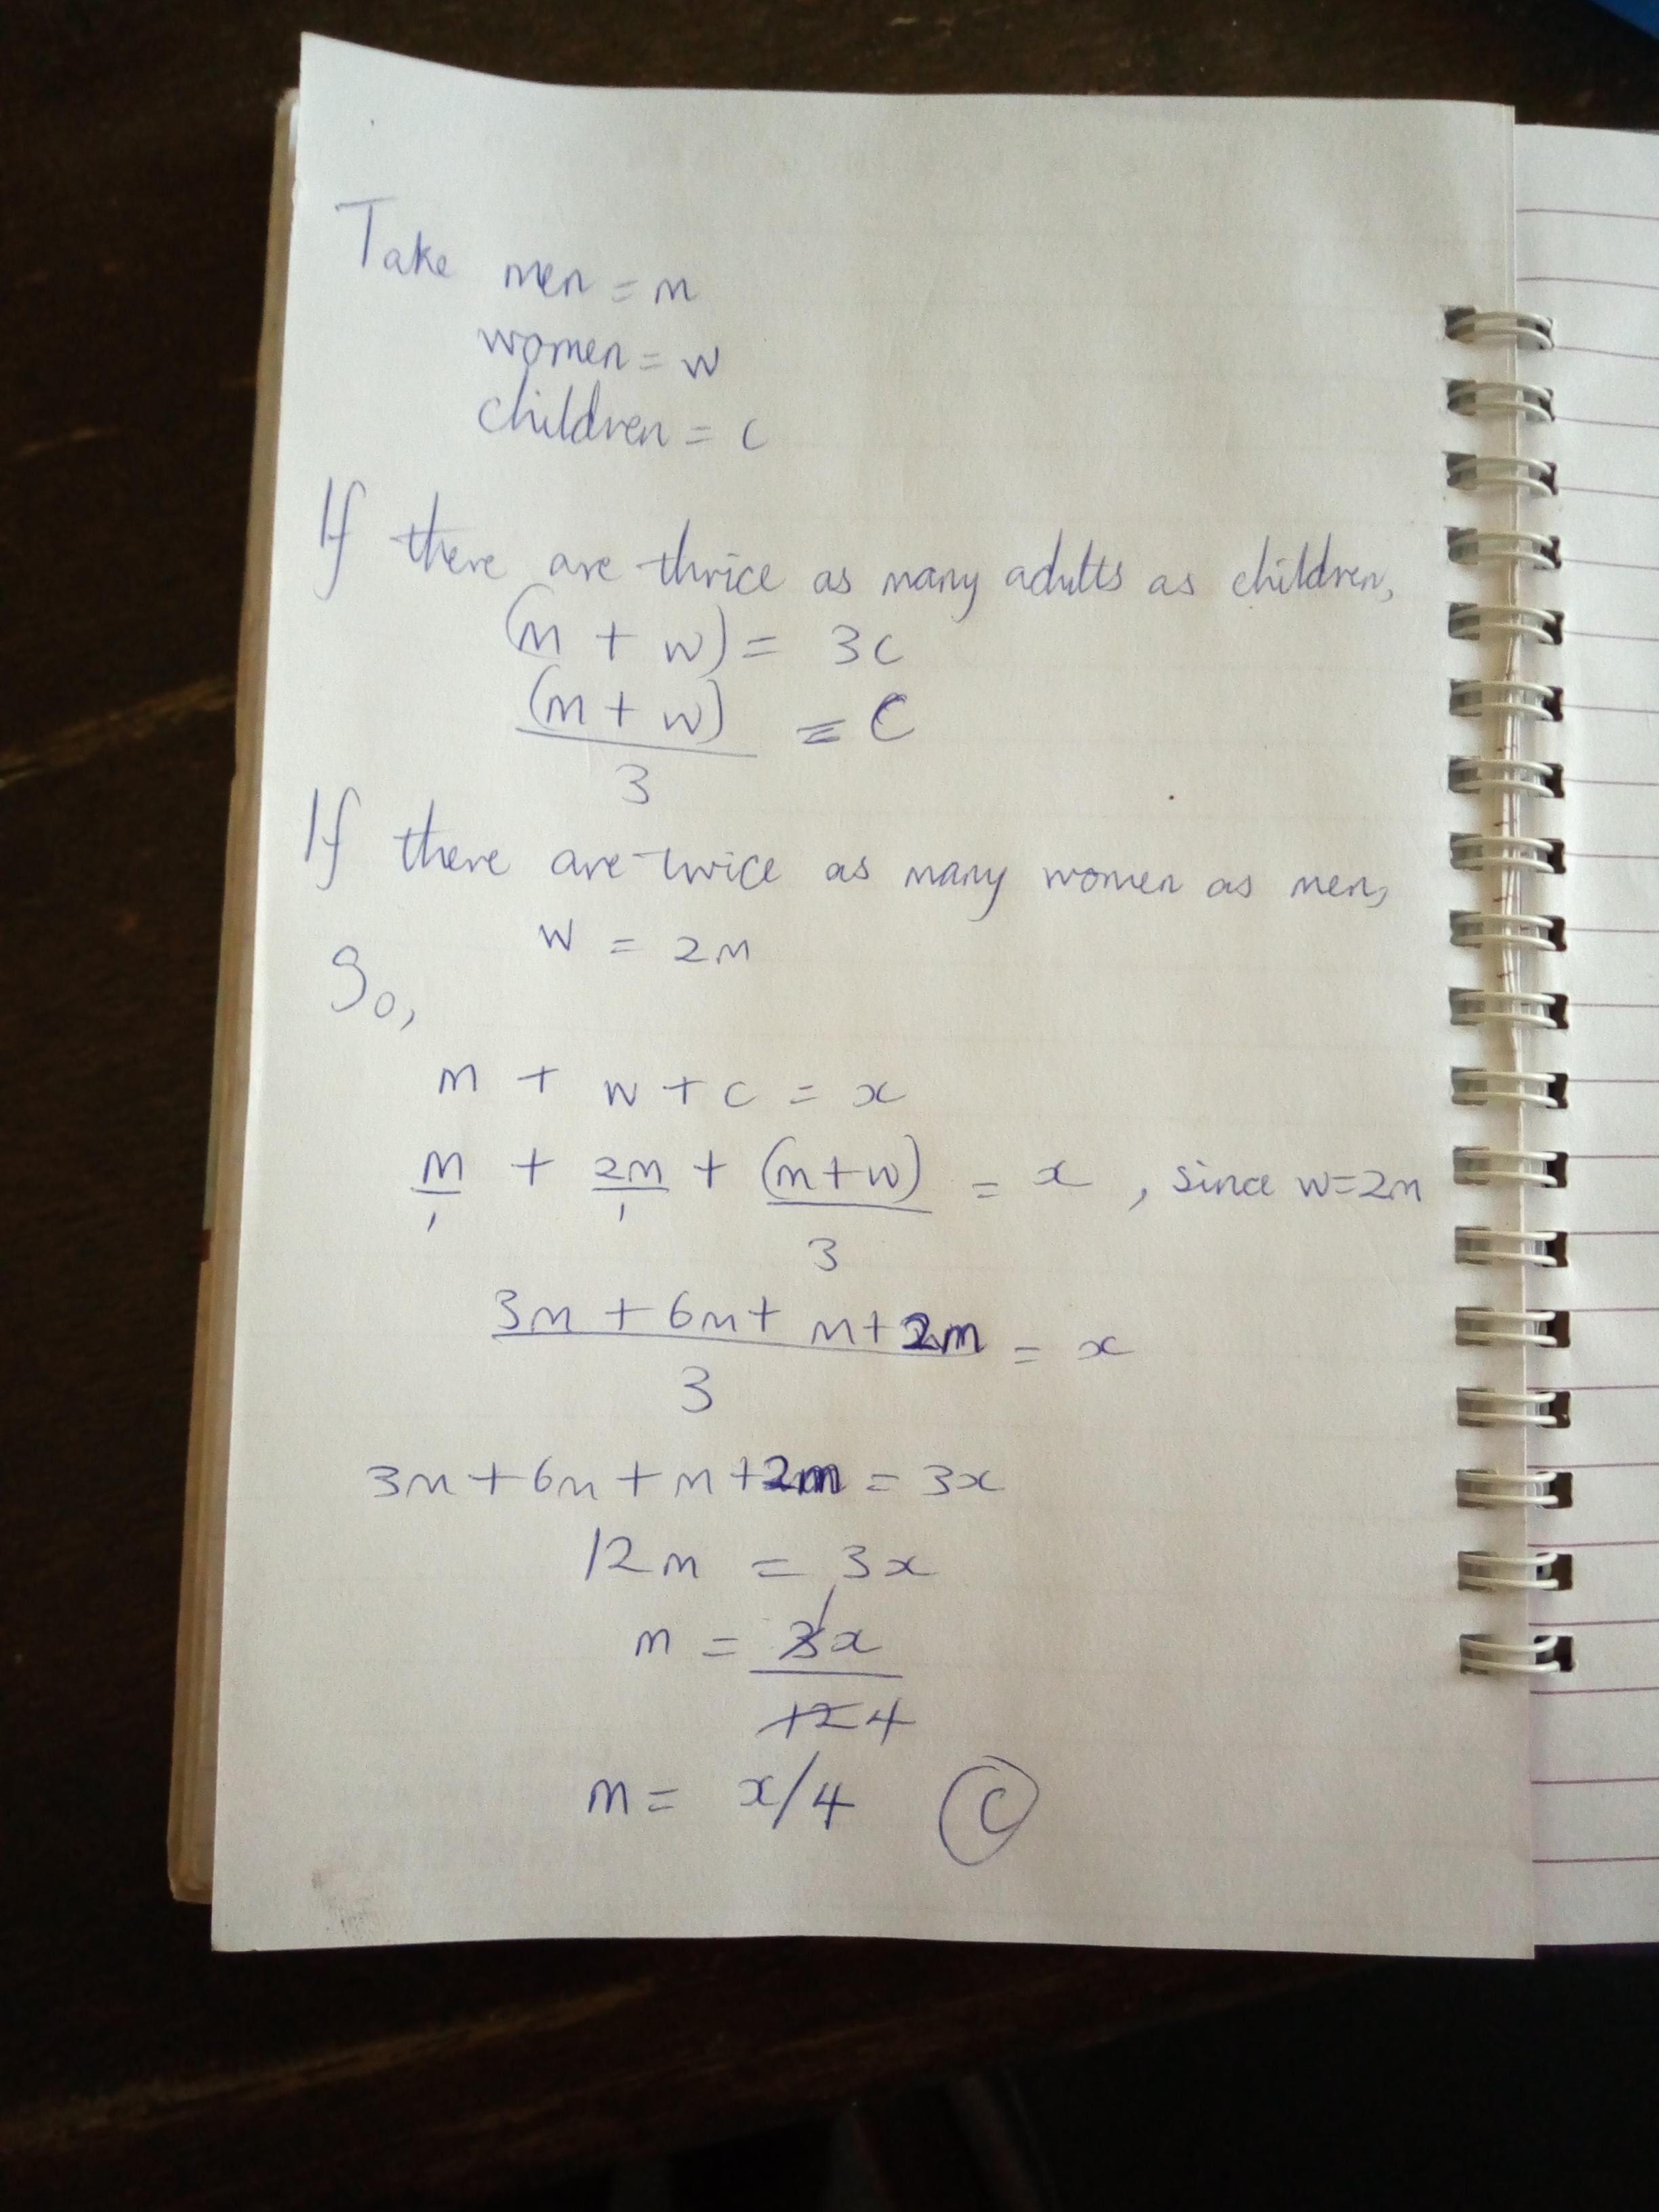 Take men = m
women = w
children = c
If there are thrice as many adults as children,
(m + w) = 3c
(m + w) = C
3
If there are twice as many women as men,
w = 2m
So,
m + w + c = x
m + 2m + (m+w) = x , since w=2m
1 1 3
3m + 6m + m + 2m = x
3
3m + 6m + m + 2m = 3x
12m = 3x
1
m = 3x
12 4
m = x/4 C